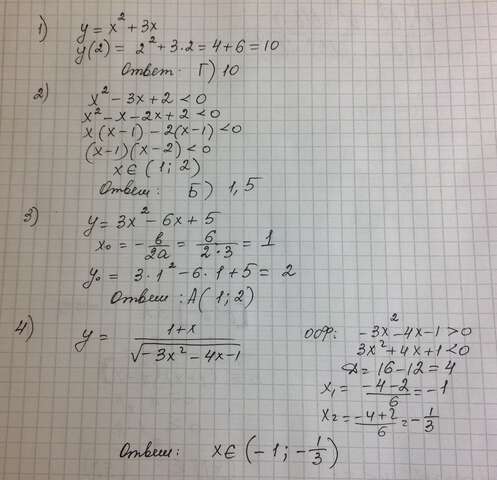 1) y = x² + 3x
y(2) = 2² + 3·2 = 4 + 6 = 10
Ответ: Г) 10
2) x² - 3x + 2 < 0
x² - x - 2x + 2 < 0
x(x-1) - 2(x-1) < 0
(x-1)(x-2) < 0
x ∈ (1; 2)
Ответ: Б) 1,5
3) y = 3x² - 6x + 5
x₀ = -b/2a = 6/2·3 = 1
y₀ = 3·1² - 6·1 + 5 = 2
Ответ: А(1; 2)
4) y = 1+x/√-3x² - 4x - 1
ООФ: -3x² - 4x - 1 > 0
3x² + 4x + 1 < 0
D = 16 - 12 = 4
x₁ = -4-2/6 = -1
x₂ = -4+2/6 = -1/3
Ответ: x ∈ (-1; -1/3)